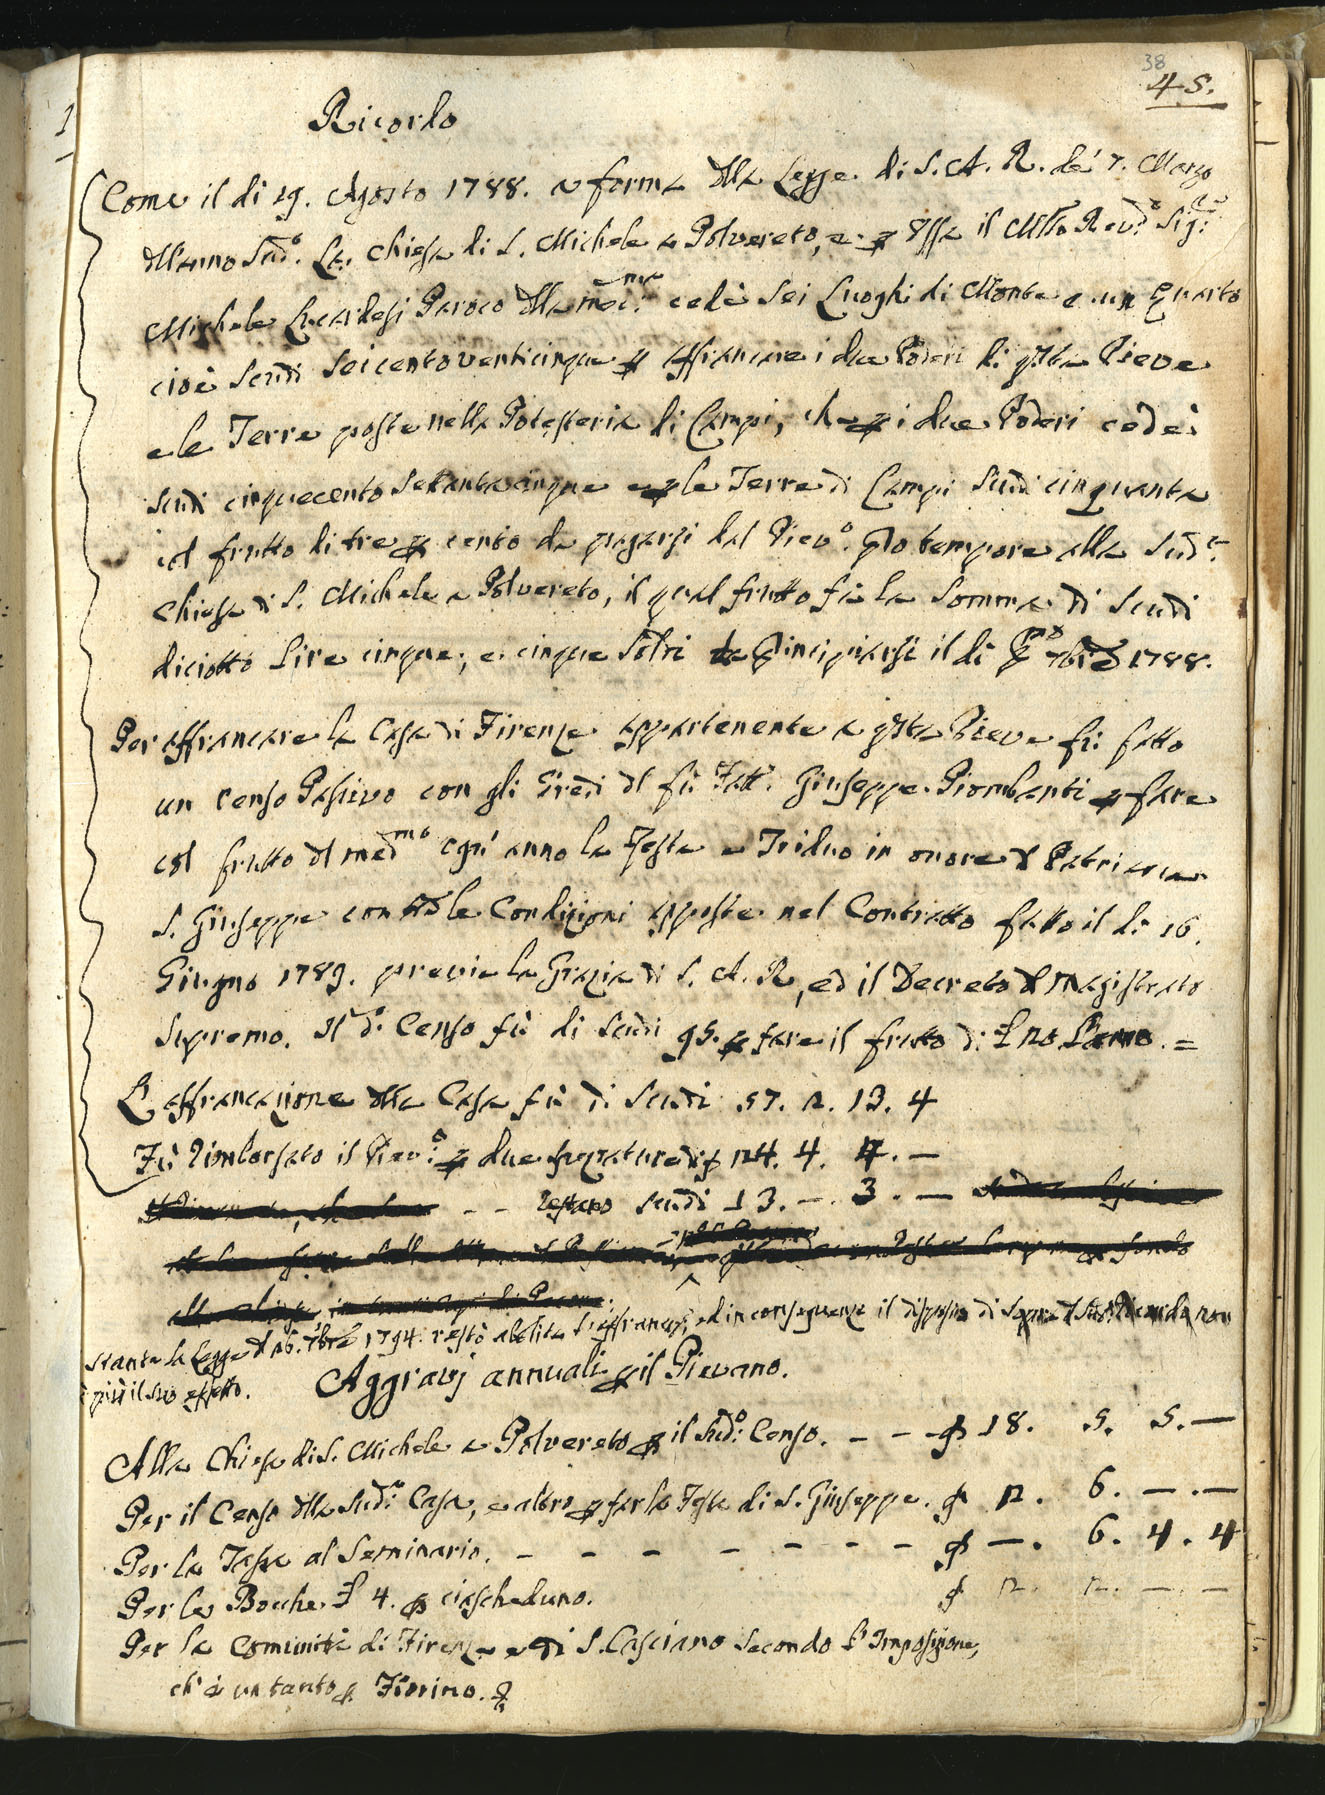 38
45.
1
Ricordo
Come il dì 19. Agosto 1788. a forma dlla Legge di S. A. R. de' 7. Marzo
dll'anno Sudo. La Chiesa di S. Michele a Polvereto, e p essa il Mto Revdo Sigre
Michele Lucardesi Paroco dlla medma cedè Sei Luoghi di Monte e un Quarto
cioè Scudi Seicentoventicinque p affrancare i due Poderi di qsta Pieve
e le Terre poste nella Potesteria di Campi, che p i due Poderi cedè
Scudi cinquecento Settantacinque e p le Terre di Campi Scudi cinquanta
col frutto di tre p cento da pagarsi dal Pievo. pro tempore alla Suda
Chiesa di S. Michele a Polvereto, il qual frutto fa la Somma di Scudi
diciotto Lire cinque, e cinque Soldi da Principiarsi il dì Pmo 7bre 1788.
Per affrancare la Casa di Firenze appartenente a qsta Pieve fù fatto
un Censo Passivo con gli Eredi dl fù Fatt. Giuseppe Piombanti p fare
col frutto dl medmo ogn' anno la Festa e Triduo in onore dl Patriarca
S. Giuseppe con le Condizioni apposte nel Contratto fatto il dì 16.
Giugno 1789. previa la Grazia di S. A. R., ed il Decreto dl Magistrato
Supremo. Il do. Censo fù di Scudi 95. p fare il frutto di £ 20 =
L'affrancazione dlla Casa fù di Scudi 57. 2. 13. 4
Fù rimborsato il Pievo. p due 24. 4. —
-- restano Scudi 13. — 3. —
Stante la Legge dl 7bre 1794. restò abolita l'affrancaze ed in conseguenza il disposto di Sopra dl Sudo Ricordo non
è più il suo effetto.
Aggravj annuali p il Pievano.
Alla Chiesa di S. Michele a Polvereto p il Sudo: Censo. - - - 18. 5. 5. —
Per il Censo dlla Suda: Casa, e altro p far la Festa di S. Giuseppe. 2. 6. —.—
Per la Tassa al Seminario. - - - - - - - —. 6. 4. 4
Per le Bocche £ 4. p ciascheduno. 2. 2. —.—
Per la Comunità di Firenze e di S. Casciano Secondo l'Imposizione,
ch' è un tanto p Fiorino.